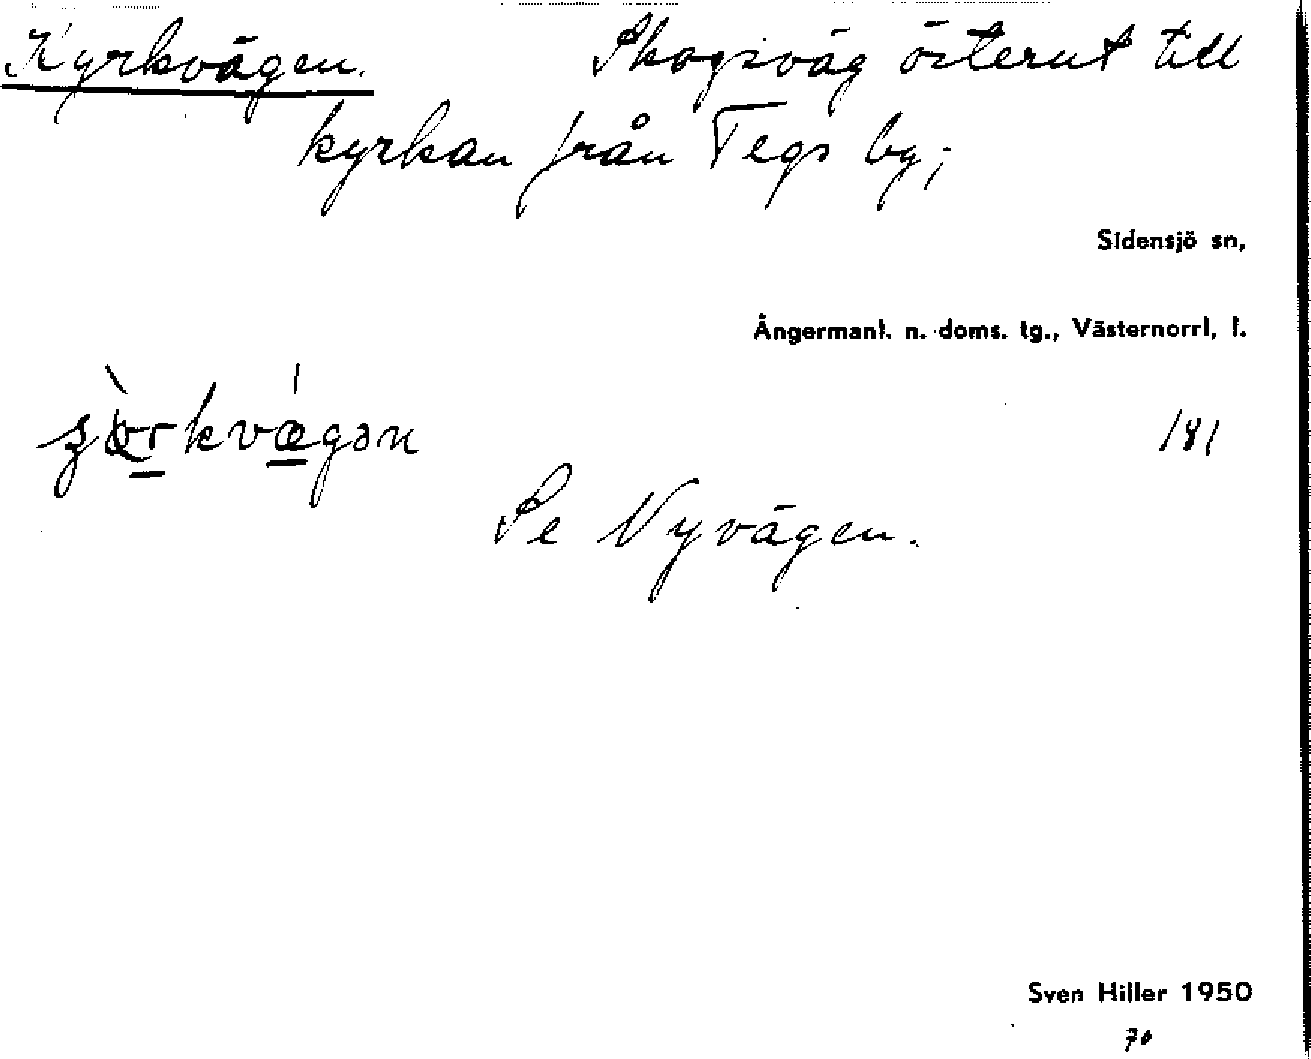 Kyrkvägen. Skogsväg österut till
kyrkan från Tegs by;
Sidensjö sn,
Ångermanl. n. doms. tg., Västernorrl. l.
181
Se Nyvägen.
Sven Hiller 1950